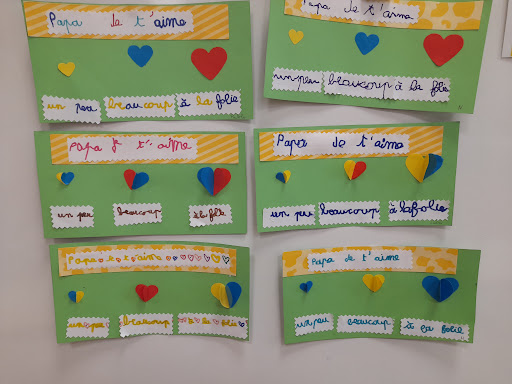 Papa Je t'aime
un peu beaucoup à la folie
Papa Je t'aime
un peu beaucoup à la folie
Papa Je t'aime
un peu beaucoup à la folie
Papa Je t'aime
un peu beaucoup à la folie
Papa Je t'aime
un peu beaucoup à la folie
Papa Je t'aime
un peu beaucoup à la folie